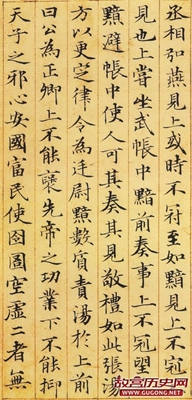 丞相弘燕見上或時不冠至如黯見上不冠
見也上嘗坐武帳中黯前奏事上不冠望
黯避帳中使人可其奏其見敬禮如此張湯
方以更定律令為廷尉黯數質責湯於上前
曰公為正卿上不能褒先帝之功業下不能抑
天子之邪心安國富民使囹圄空虛二者無
故宫历史网
www.gugong.net